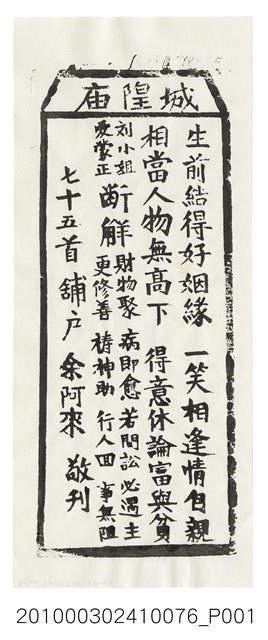 城隍庙
生前結得好姻緣 一笑相逢情自親
相當人物無高下 得意休論富與貧
劉小姐愛蒙正
斷解 財物聚 病即愈 若問訟 必遇主
更修善 禱神助 行人回 事無阻
七十五首 舖户 余阿來 敬刊
201000302410076_P001